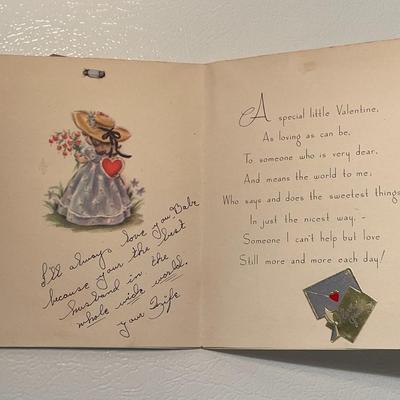 I'll always love you Babe
because your the best
husband in the
whole wide world.
your Wife
A special little Valentine,
As loving as can be,
To someone who is very dear,
And means the world to me;
Who says and does the sweetest things
In just the nicest way, -
Someone I can't help but love
Still more and more each day!